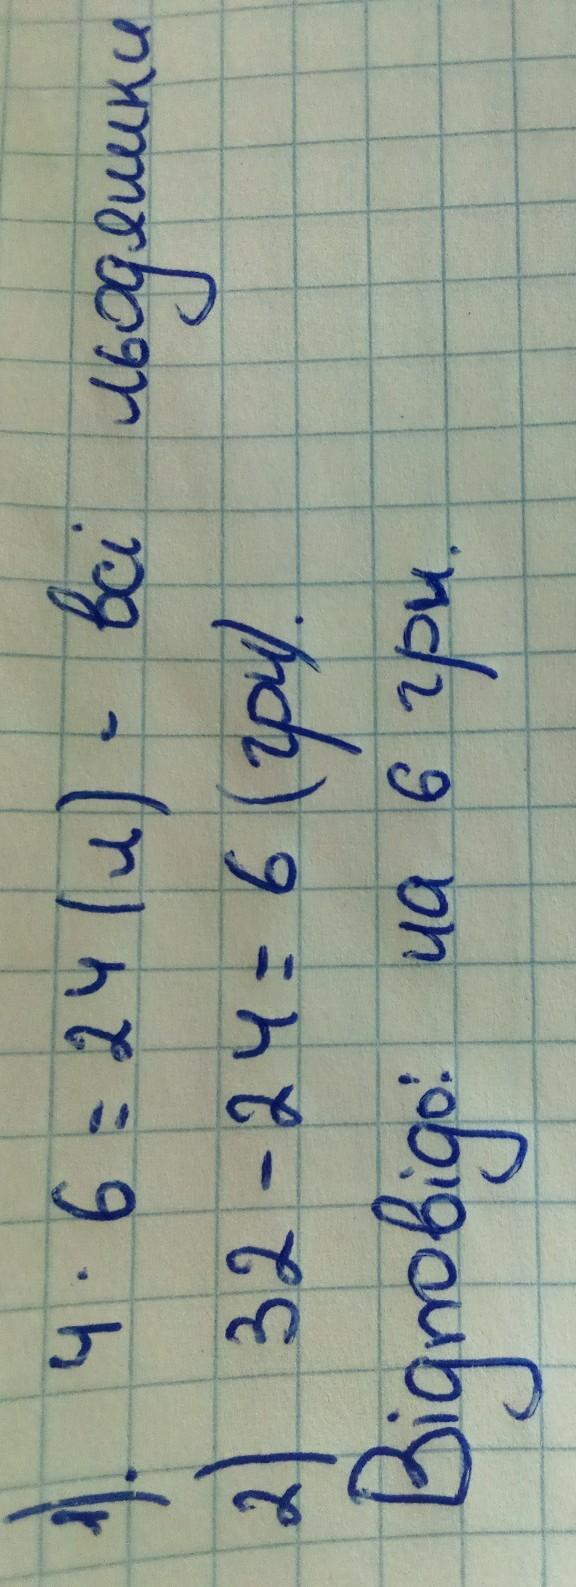 1). 4 · 6 = 24 (л) - всі льодяники
2) 32 - 24 = 6 (грн).
Відповідь: на 6 грн.